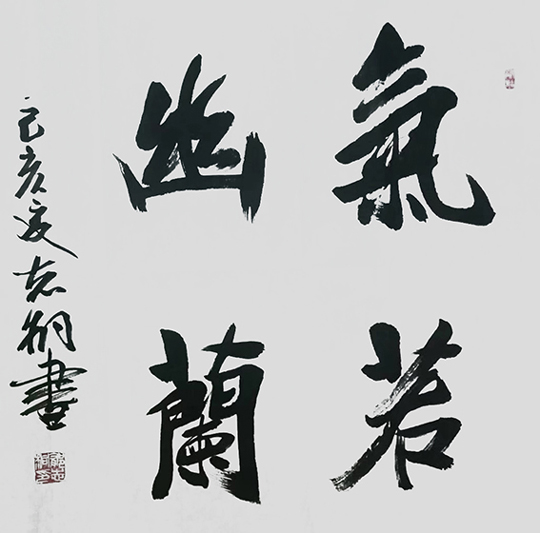 氣若
幽蘭
己亥夏志書